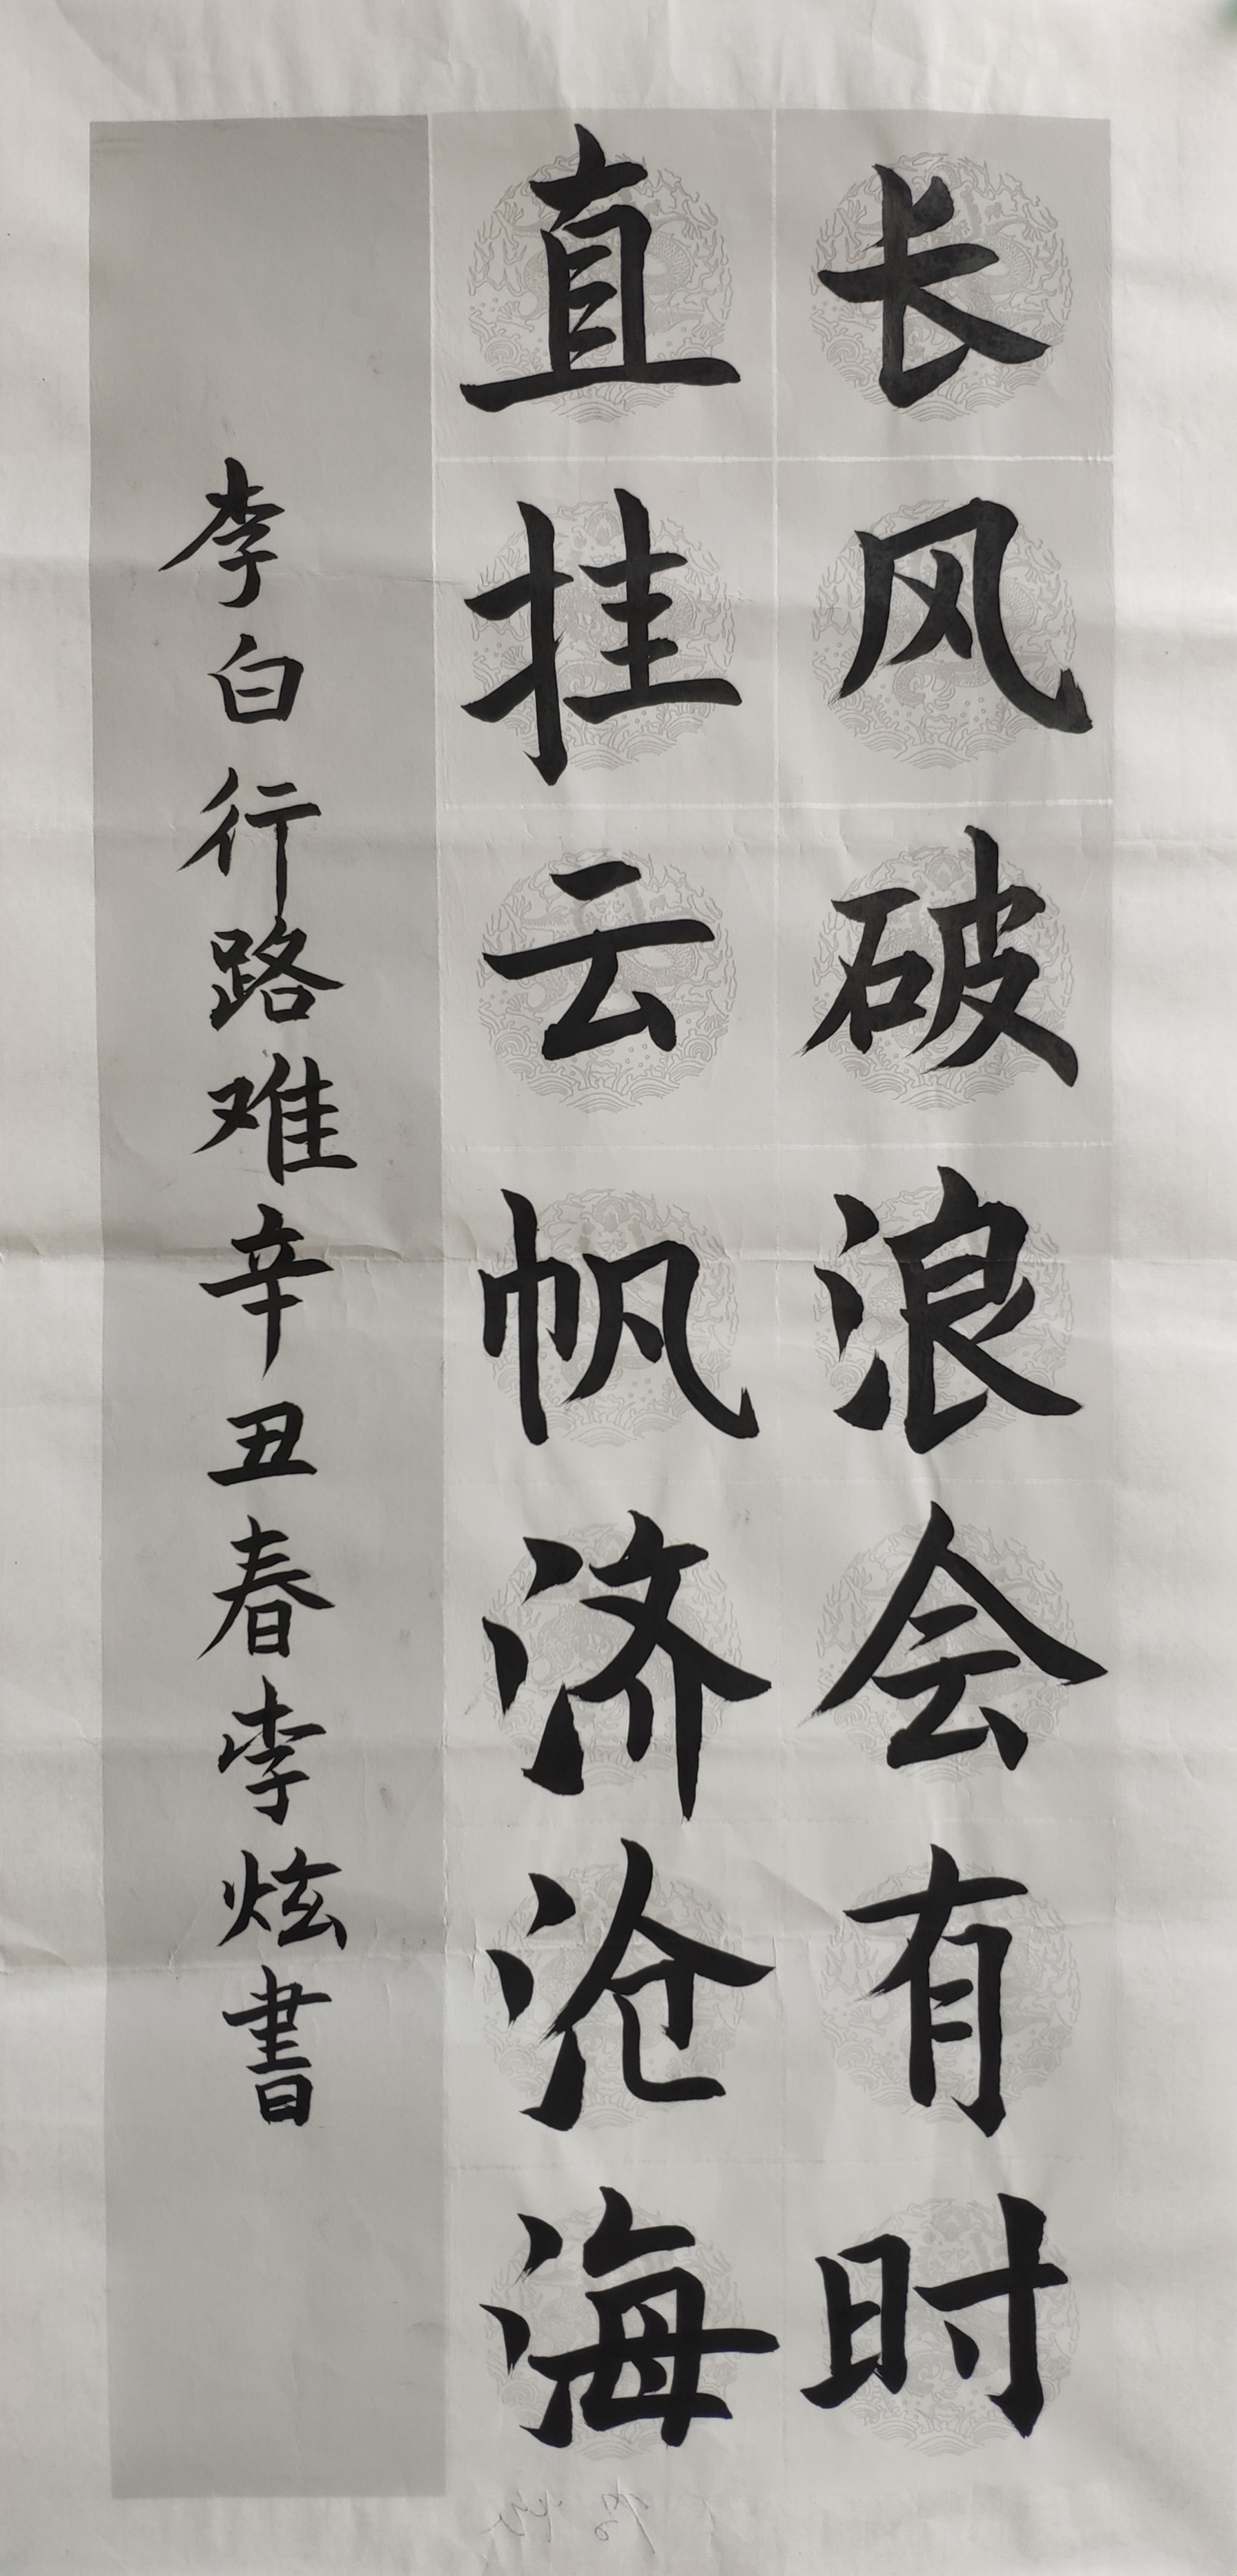 长风破浪会有时
直挂云帆济沧海
李白行路难辛丑春李炫書